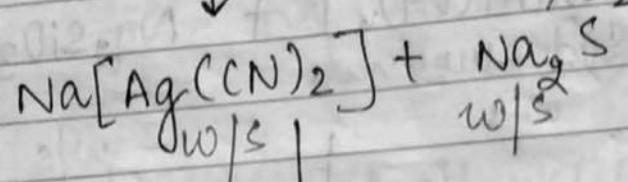 Na[Ag(CN)₂] + Na₂S
w/s | w/s